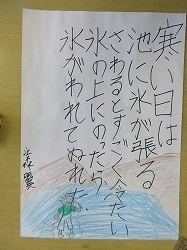 寒い日は
池に氷が張る
さわるとすごく冷たい
氷の上にのったら
氷がわれてぬれた.